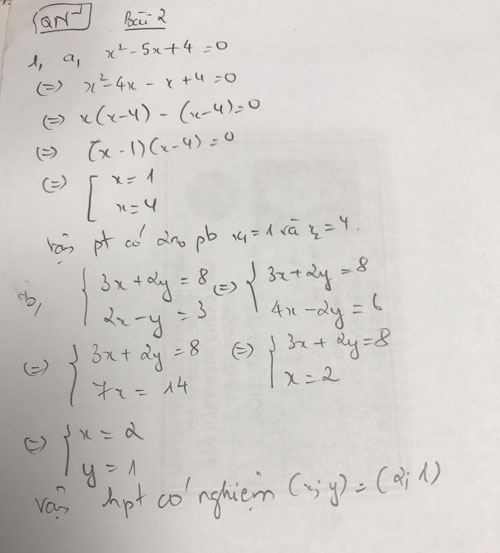 QN Bài 2
1, a, x² - 5x + 4 = 0
(=) x² - 4x - x + 4 = 0
(=) x(x-4) - (x-4) = 0
(=) (x-1)(x-4) = 0
(=) [ x = 1
x = 4
Vậy pt có 2no pb x₁ = 1 và x₂ = 4.
b, { 3x + 2y = 8 (=) { 3x + 2y = 8
2x - y = 3 4x - 2y = 6
(=) { 3x + 2y = 8 (=) { 3x + 2y = 8
7x = 14 x = 2
(=) { x = 2
y = 1
Vậy hpt có nghiệm (x; y) = (2; 1)